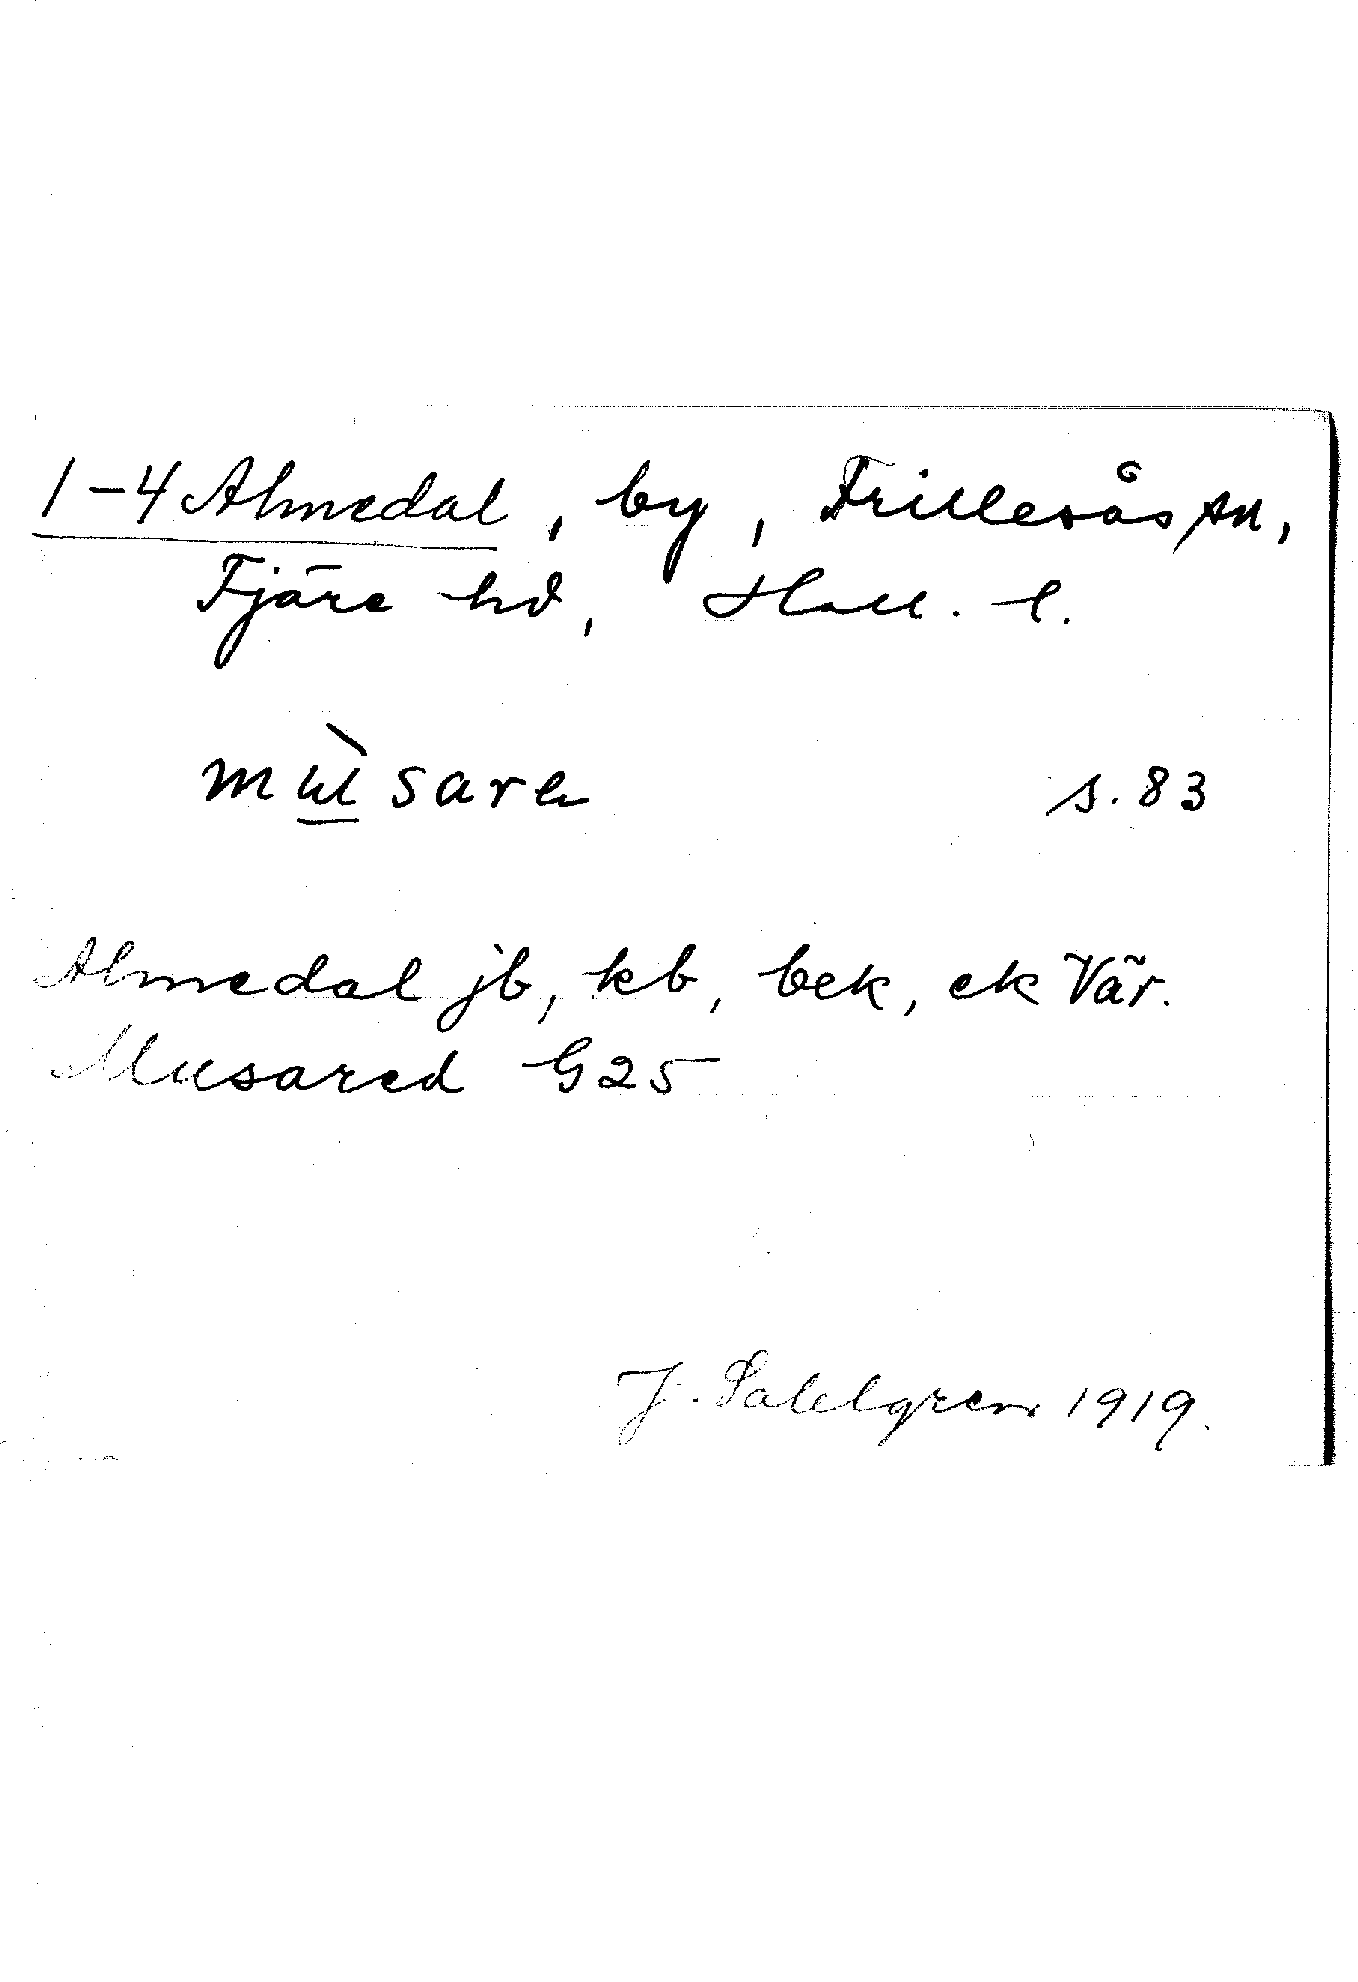 1-4 Almedal, by, Frillesås sn,
Fjäre hd, Hall. l.
mù̲sara s. 83
Almedal jb, kb, bek, ek Vär.
Musared G25
J. Sahlgren 1919.